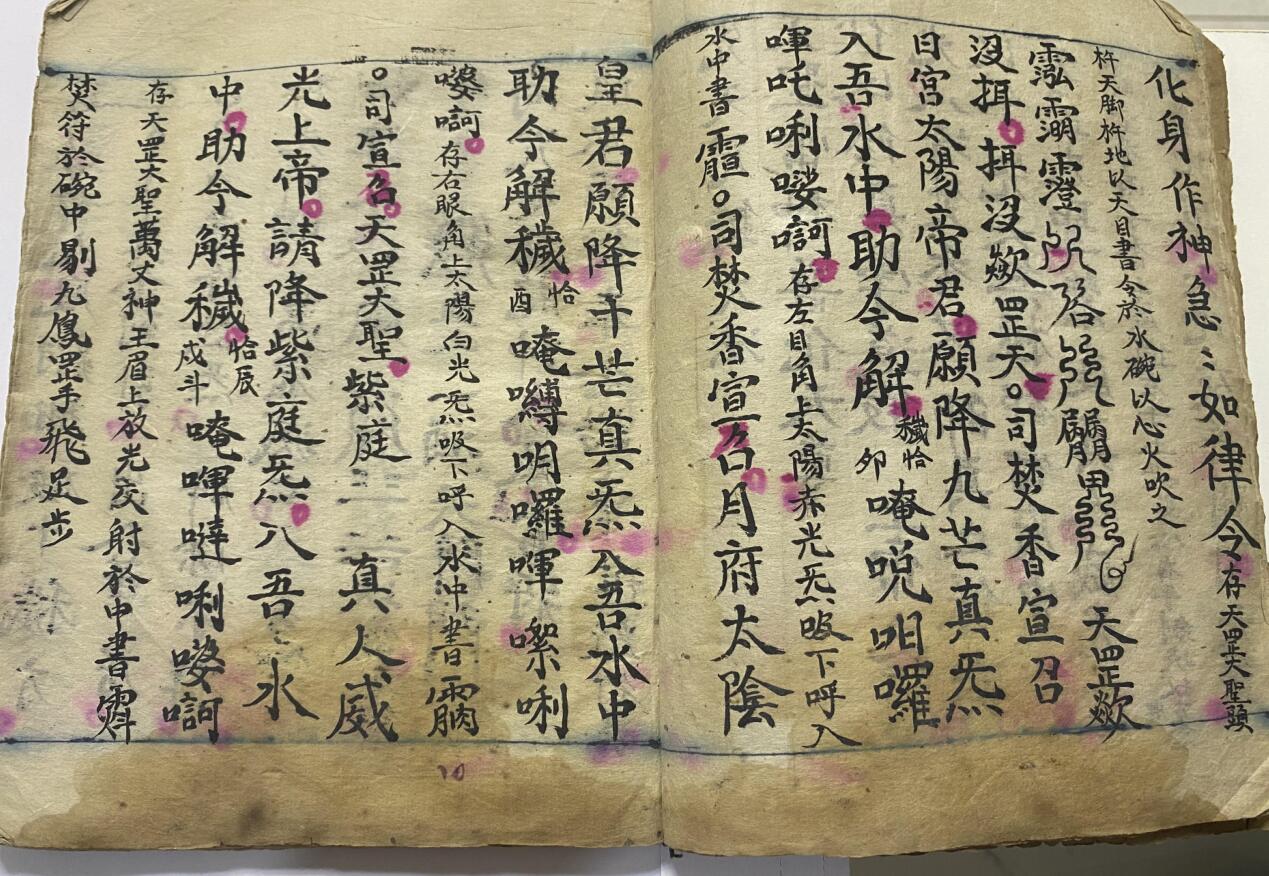 化身作神急〻如律令存天罡大聖頭
杵天脚杵地以天目書令於水碗以心火吹之
天罡歘
没挕挕没歘罡天。司焚香宣召
日宮太陽帝君願降九芒真炁
入吾水中助今解穢恰卯唵哾呬囉
㖶吒唎㗑𠶹存左目角上太陽赤光炁吸下呼入
水中書。司焚香宣召月府太陰
皇君願降千芒真炁入吾水中
助今解穢恰酉唵嚩明囉㖶唎
𠶹存右眼角上太陽白光炁吸下呼入水中書
。司宣召天罡大聖紫庭真人威
光上帝請降紫庭炁入吾水
中助今解穢恰辰戌斗唵㖶噠唎婆𠶹
存天罡大聖萬丈神王眉上放光交射於中書
焚符於碗中剔九鳳罡手飛足步
10